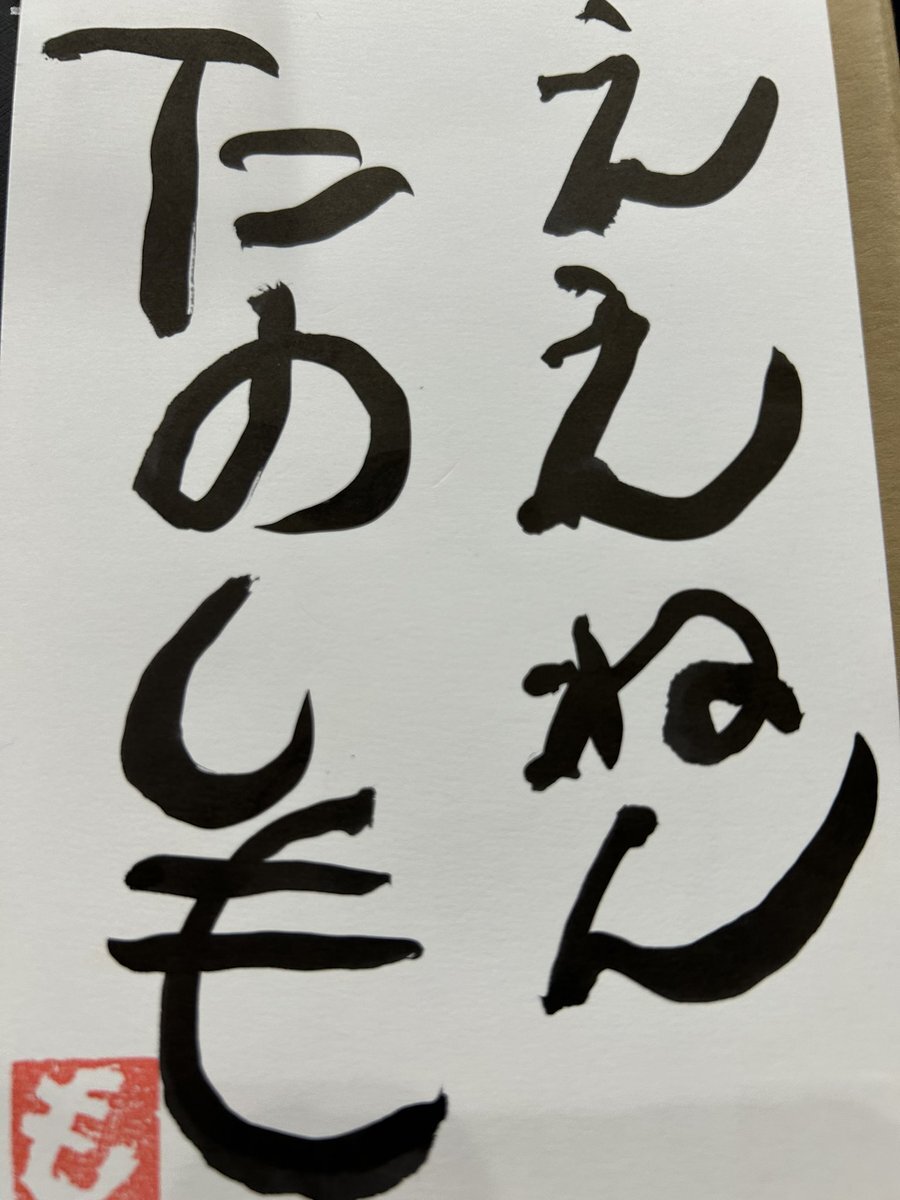 ええねん
たのしも
も